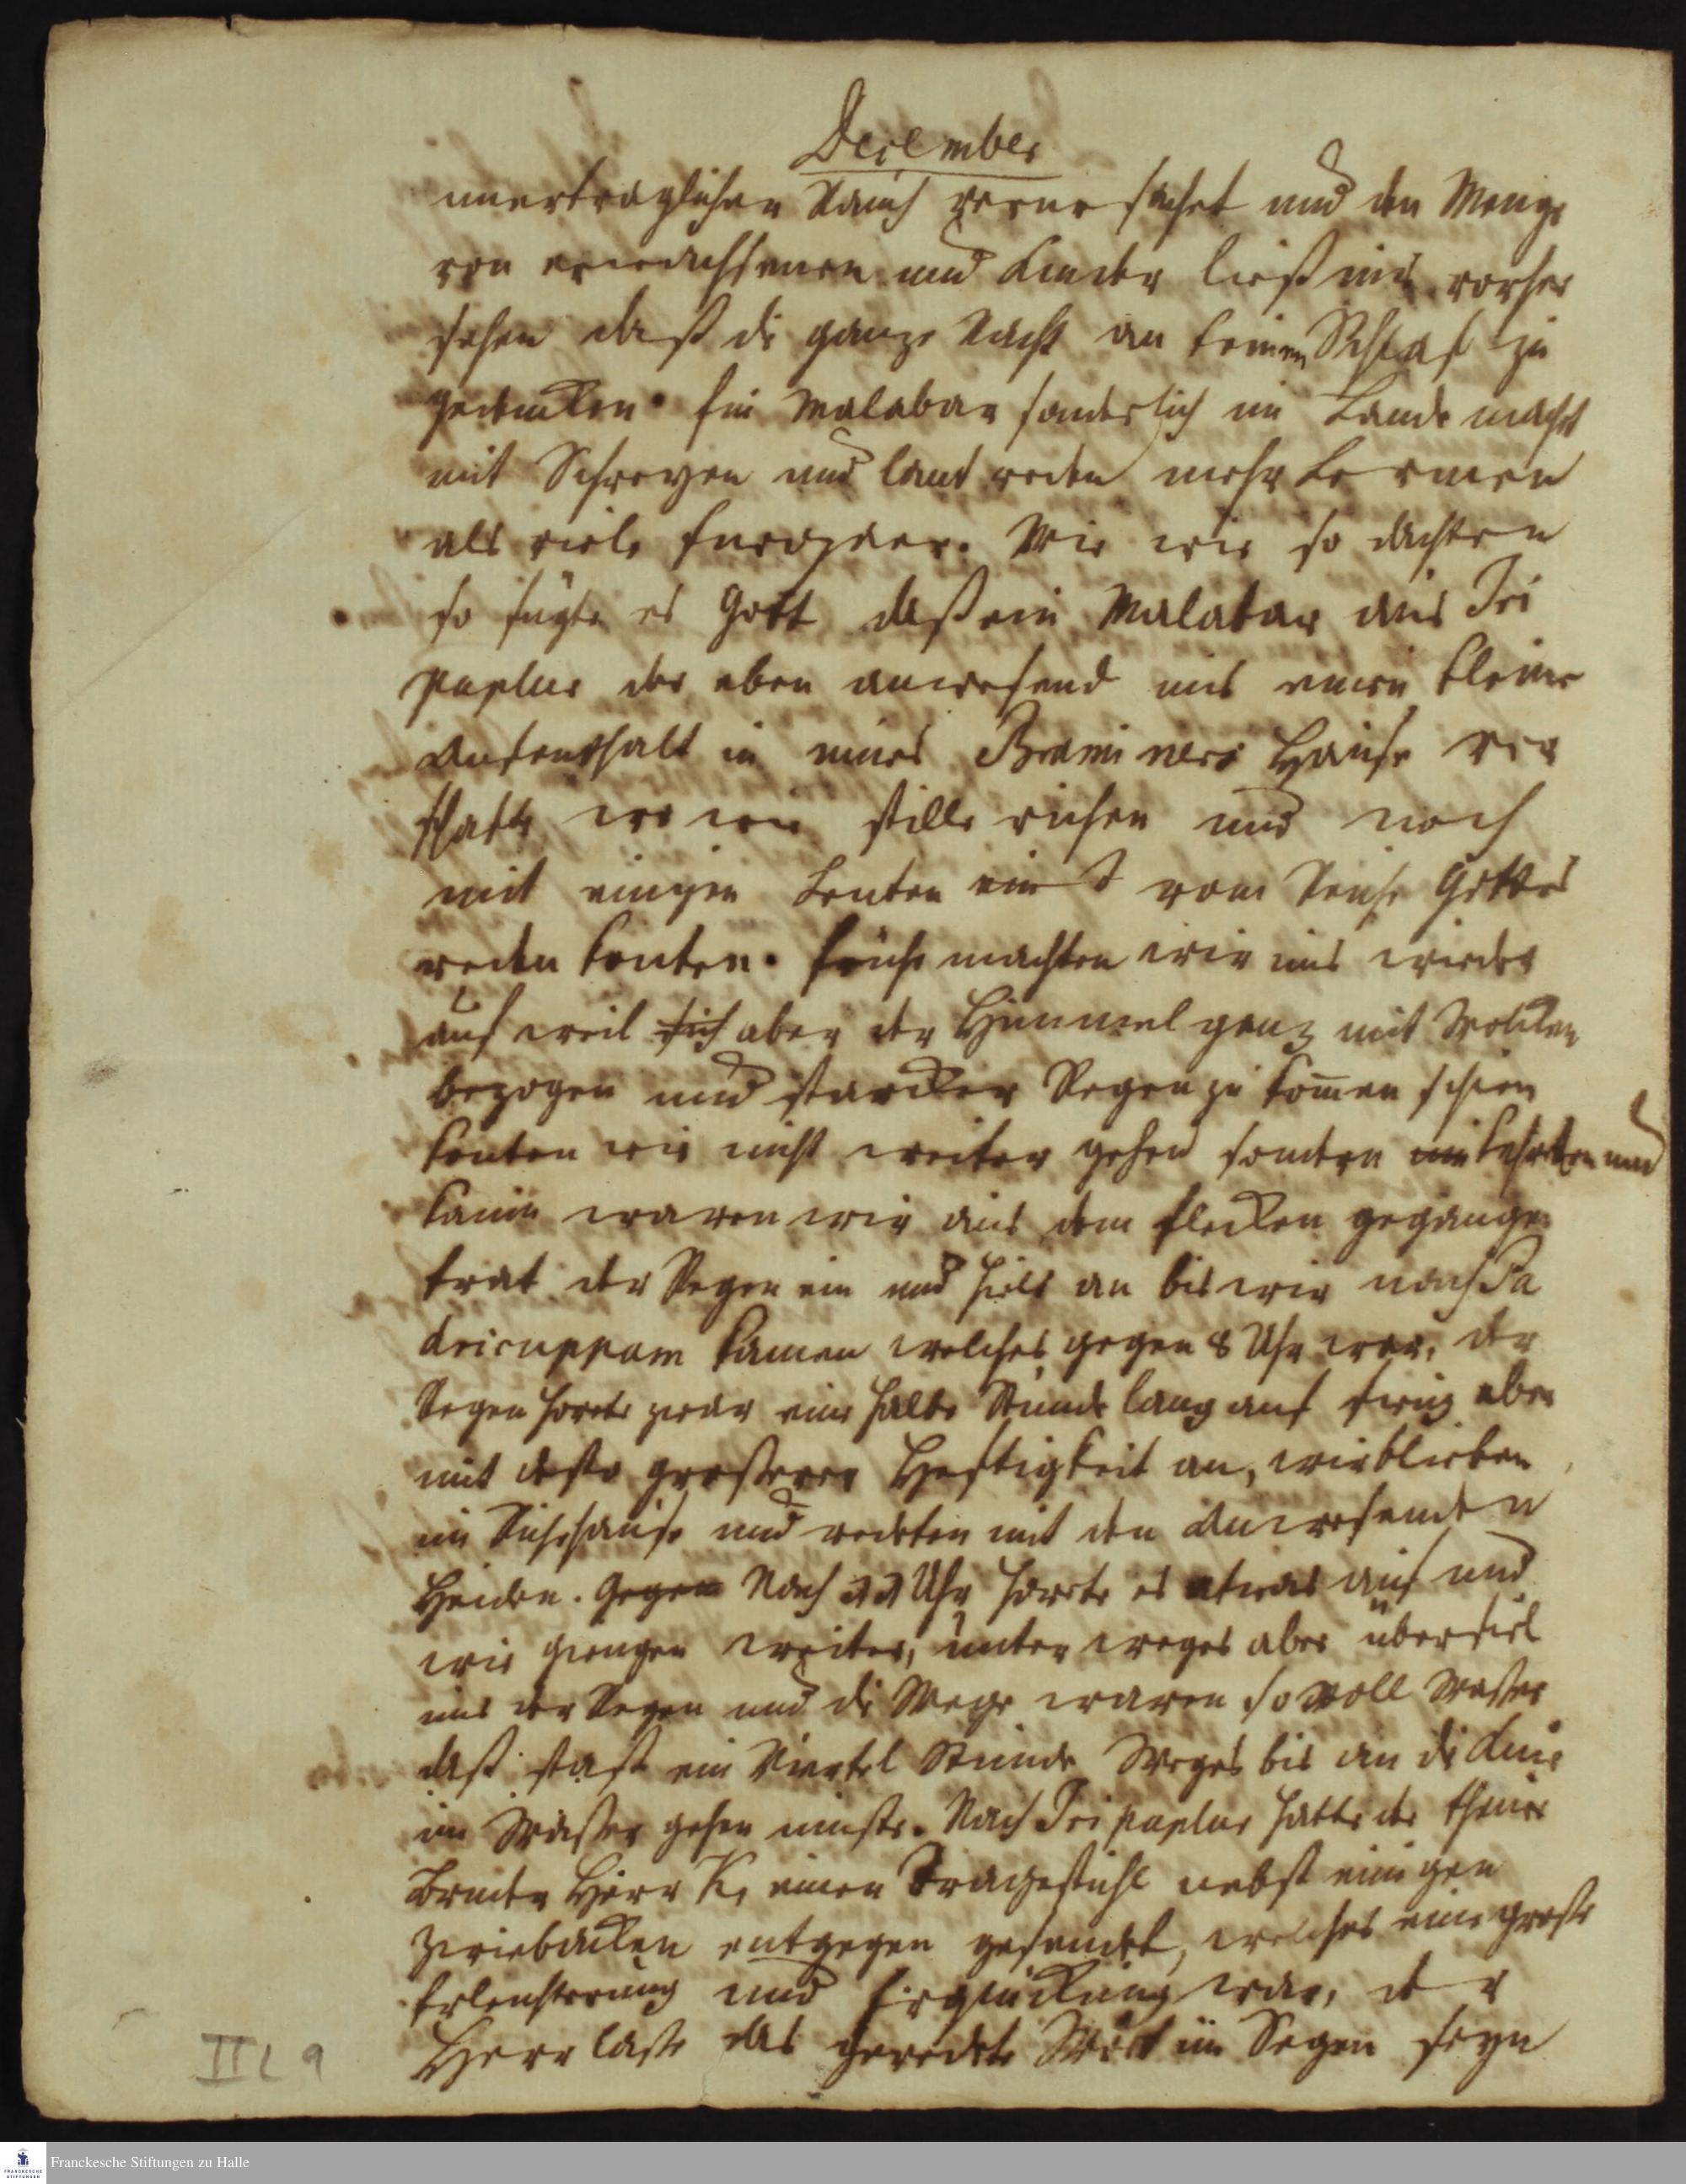 December
unerträglichen Rauch verursachet und die Menge
von erwachsenen und Kinder ließ uns vorher
sehen daß die ganze Nacht an keinen Schlaf zu
gedencken. Ein Malabar sonderlich im Lande macht
mit Schreyen und laut reden mehr Lermen
als viele Europaeer. Wie wir so dachten
so fügte es Gott daß ein Malabar aus Tri
paplur der eben anwesend uns einen kleinen
Aufenthalt in eines Braminers Hause ver
schafte wo wir stille ruhen und noch
mit einigen Leuten vom Reiche Gottes
reden konten. Frühe machten wir uns wieder
auf weil sich aber der Himmel ganz mit Wolcken
bezogen und starcker Regen zu kom̅en schien
konten wir nicht weiter gehen sondern kehrten um
kaum waren wir aus dem Flecken gegangen
trat der Regen ein und hielt an bis wir nach Pa
dricuppam kamen welches gegen 8 Uhr war, der
Regen horete zwar eine halbe Stunde lang auf fieng aber
mit desto großerer Heftigkeit an, wir blieben
im Ruhehause und redeten mit den anwesenden
Heiden. Gegen Nach 11 Uhr horete es etwas auf und
wir giengen weiter, unter weges aber überfiel
uns der Regen und die Wege waren so voll Waßer
daß fast ein Viertel Stunde Weges bis an die Knie
im Waßer gehen muste. Nach Tripaplur hatte der theure
Bruder Herr K, einen Tragestuhl nebst einigen
Zwiebacken entgegen gesendet, welches eine große
Erleichterung und Erquickung war, der
Herr laße das geredete Wort im Segen seyn
II L 9
Franckesche Stiftungen zu Halle
FRANCKESCHE STIFTUNGEN